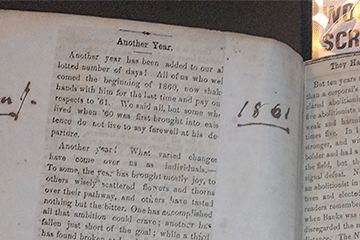 Another Year.
Another year has been added to our al
lotted number of days! All of us who wel
comed the beginning of 1860, now shake
hands with him for the last time and pay our
respects to '61. We said all, but some who
lived when '60 was first-brought into exis
tence do not live to say farewell at his de-
parture.
Another year! What varied changes
have come over us as individuals.—
To some, the year has brought mostly, joy, to
others wisely scattered flowers and thorns
over their pathway, and others have tasted
nothing but the bitter. One has accomplished
all that ambition could crave; another has
fallen just short of the goal; while a third
has found broken
1861
They Ha
But few years
than a corporal's
clared abolitionis
sive abolitionis
weak and harml
times five. In
was worn, and w
bolder and had a
the field, but th
signal defeat. N
an abolitionist
ives and elected
readers remember
when Banks was